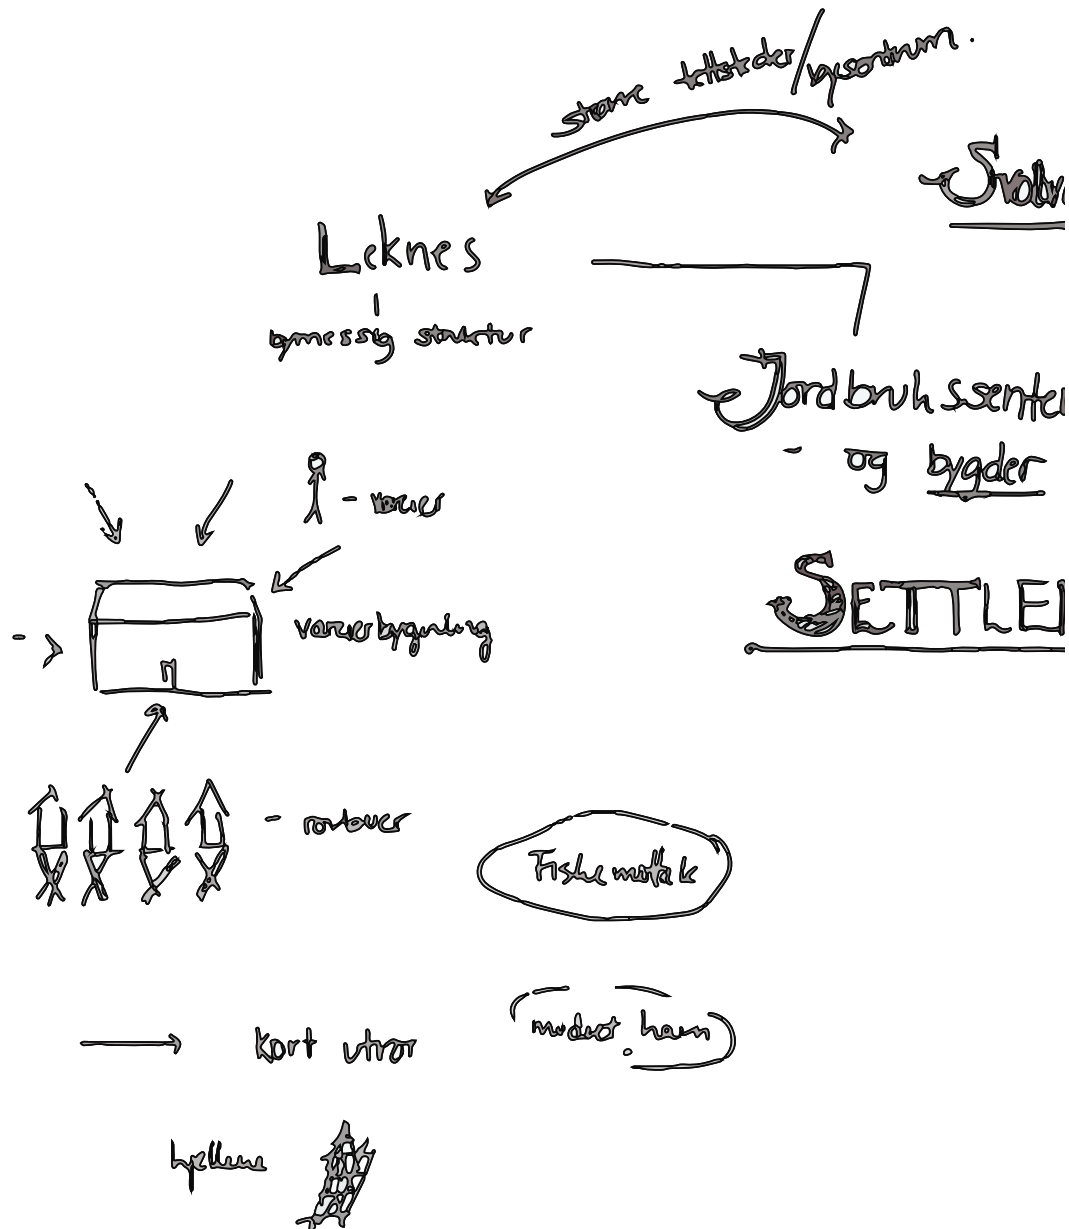 større tettsteder/bysentrum.
Svolv
Leknes
bymessig struktur
Jordbrukssenter
- og bygder
- væreier
SETTLE
væreierbygning
- rorbuer
Fiskemottak
Kort utror
hjellene